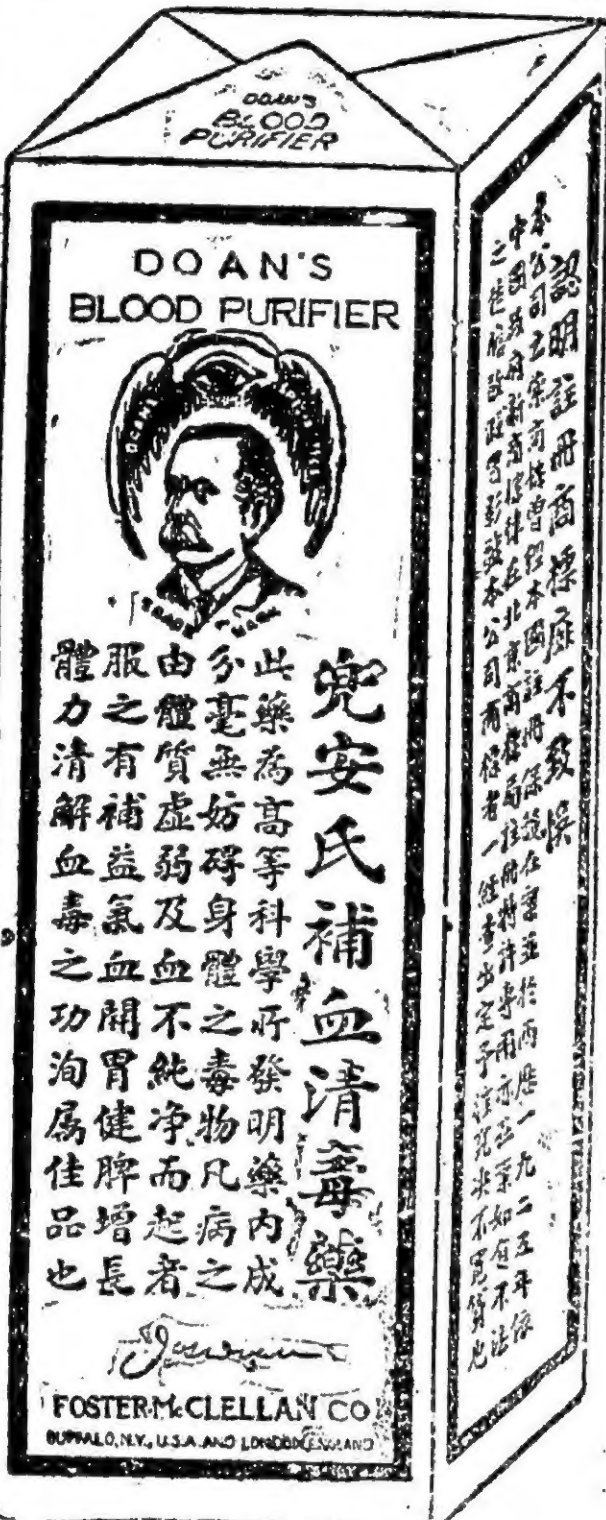 DOAN'S
BLOOD
PURIFIER
DOAN'S
BLOOD PURIFIER
DOAN'S
TRADE MARK
兜安氏補血清毒藥
此藥為高等科學所發明藥內成
分毫無妨碍身體之毒物凡病之
由體質虛弱及血不純净而起者
服之有補益氣血開胃健脾增長
體力清解血毒之功洵屬佳品也
FOSTER-McCLELLAN CO
BUFFALO, N.Y., U.S.A. AND LONDON, ENGLAND
認明註冊商標庶不致悞
本公司之藥商標曾經本國註冊保護在案並於西歷一九二五年依
中國政府新商標律在北京商標局註冊特許專用亦在案如有不法
之徒膽敢影戤本公司商標者一經查出定予追究决不寬貸也